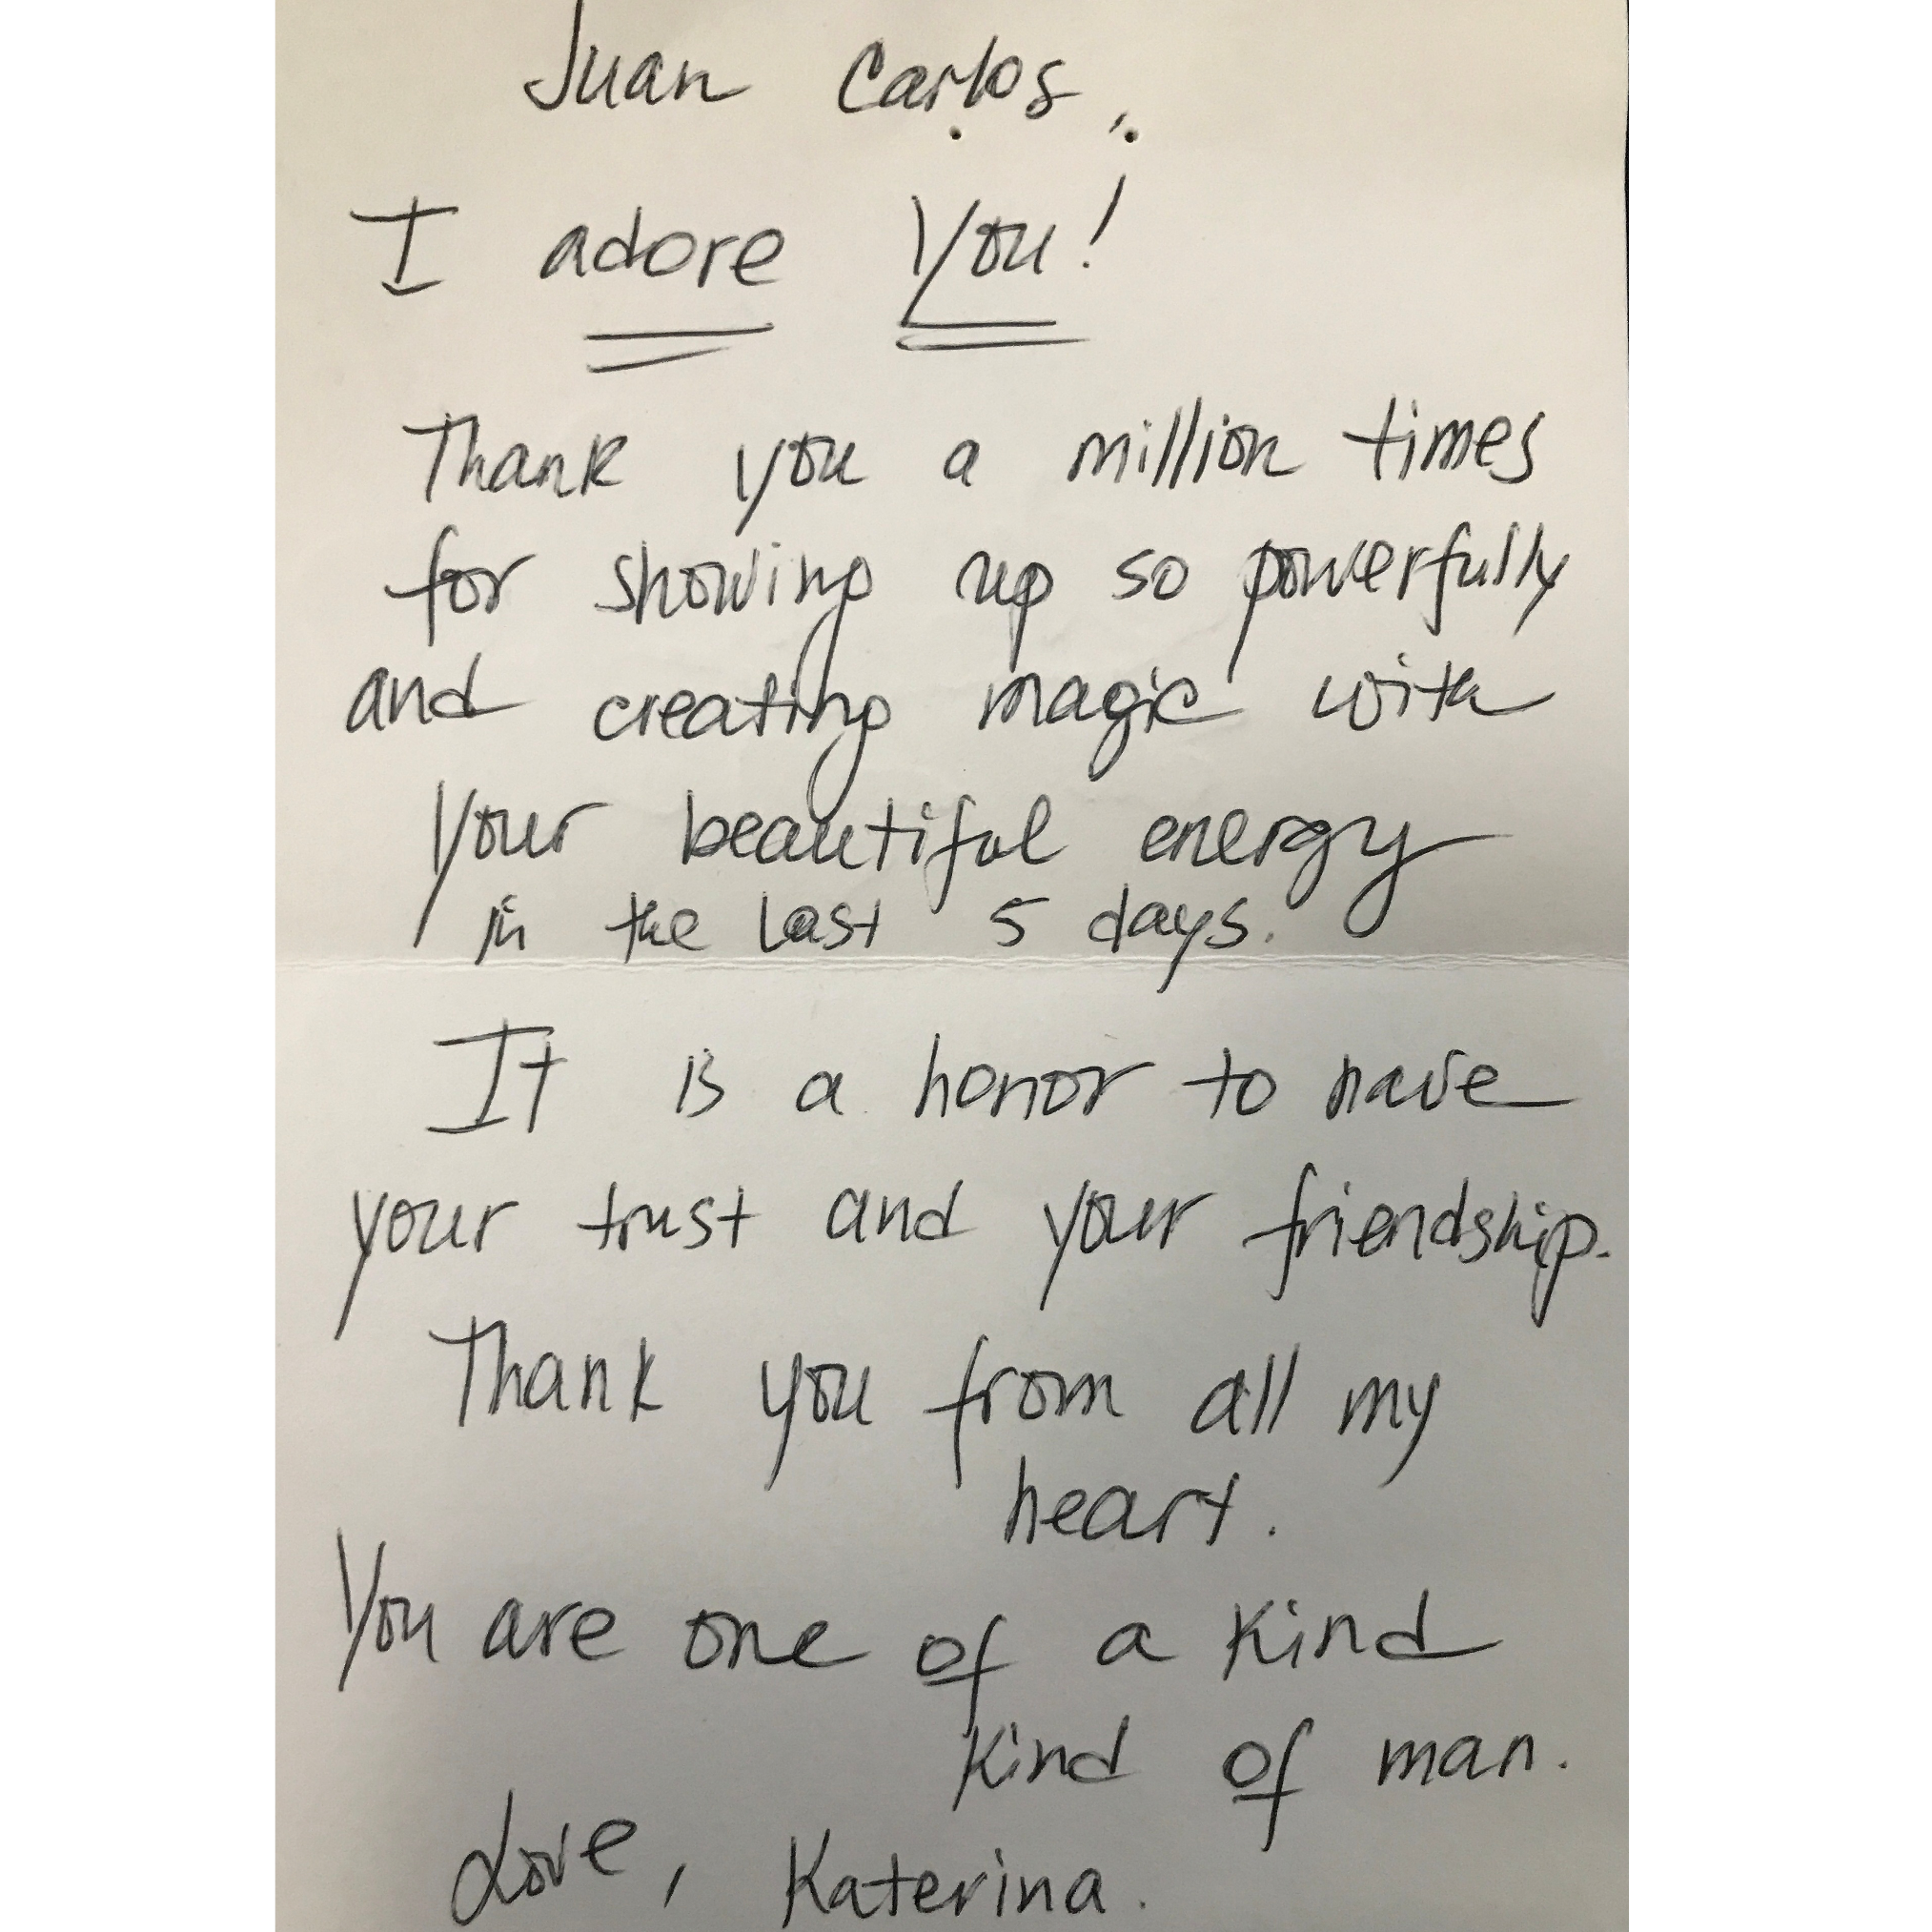 Juan Carlos,
I adore You!
Thank you a million times
for showing up so powerfully
and creating magic with
Your beautiful energy
in the last 5 days.
It is a honor to have
your trust and your friendship.
Thank you from all my
heart.
You are one of a kind
kind of man.
Love, Katerina.